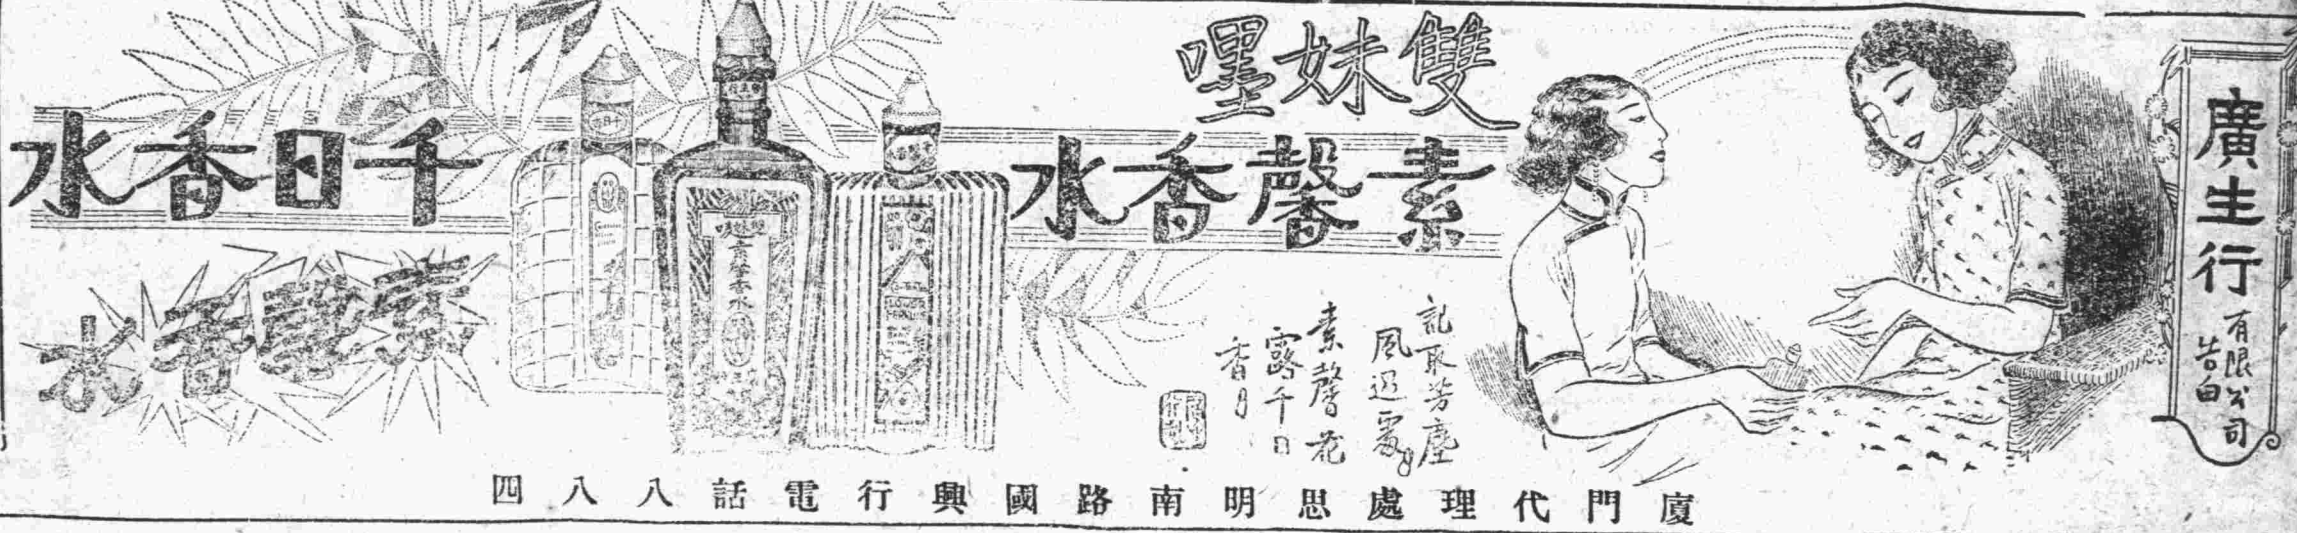 廣生行
有限公司
告白
雙妹嚜
素馨香水
千日香水
素馨香水
記取芳塵
風過處
素馨花
露千日
香
素馨香水
廈門代理處思明南路國興行電話八八四